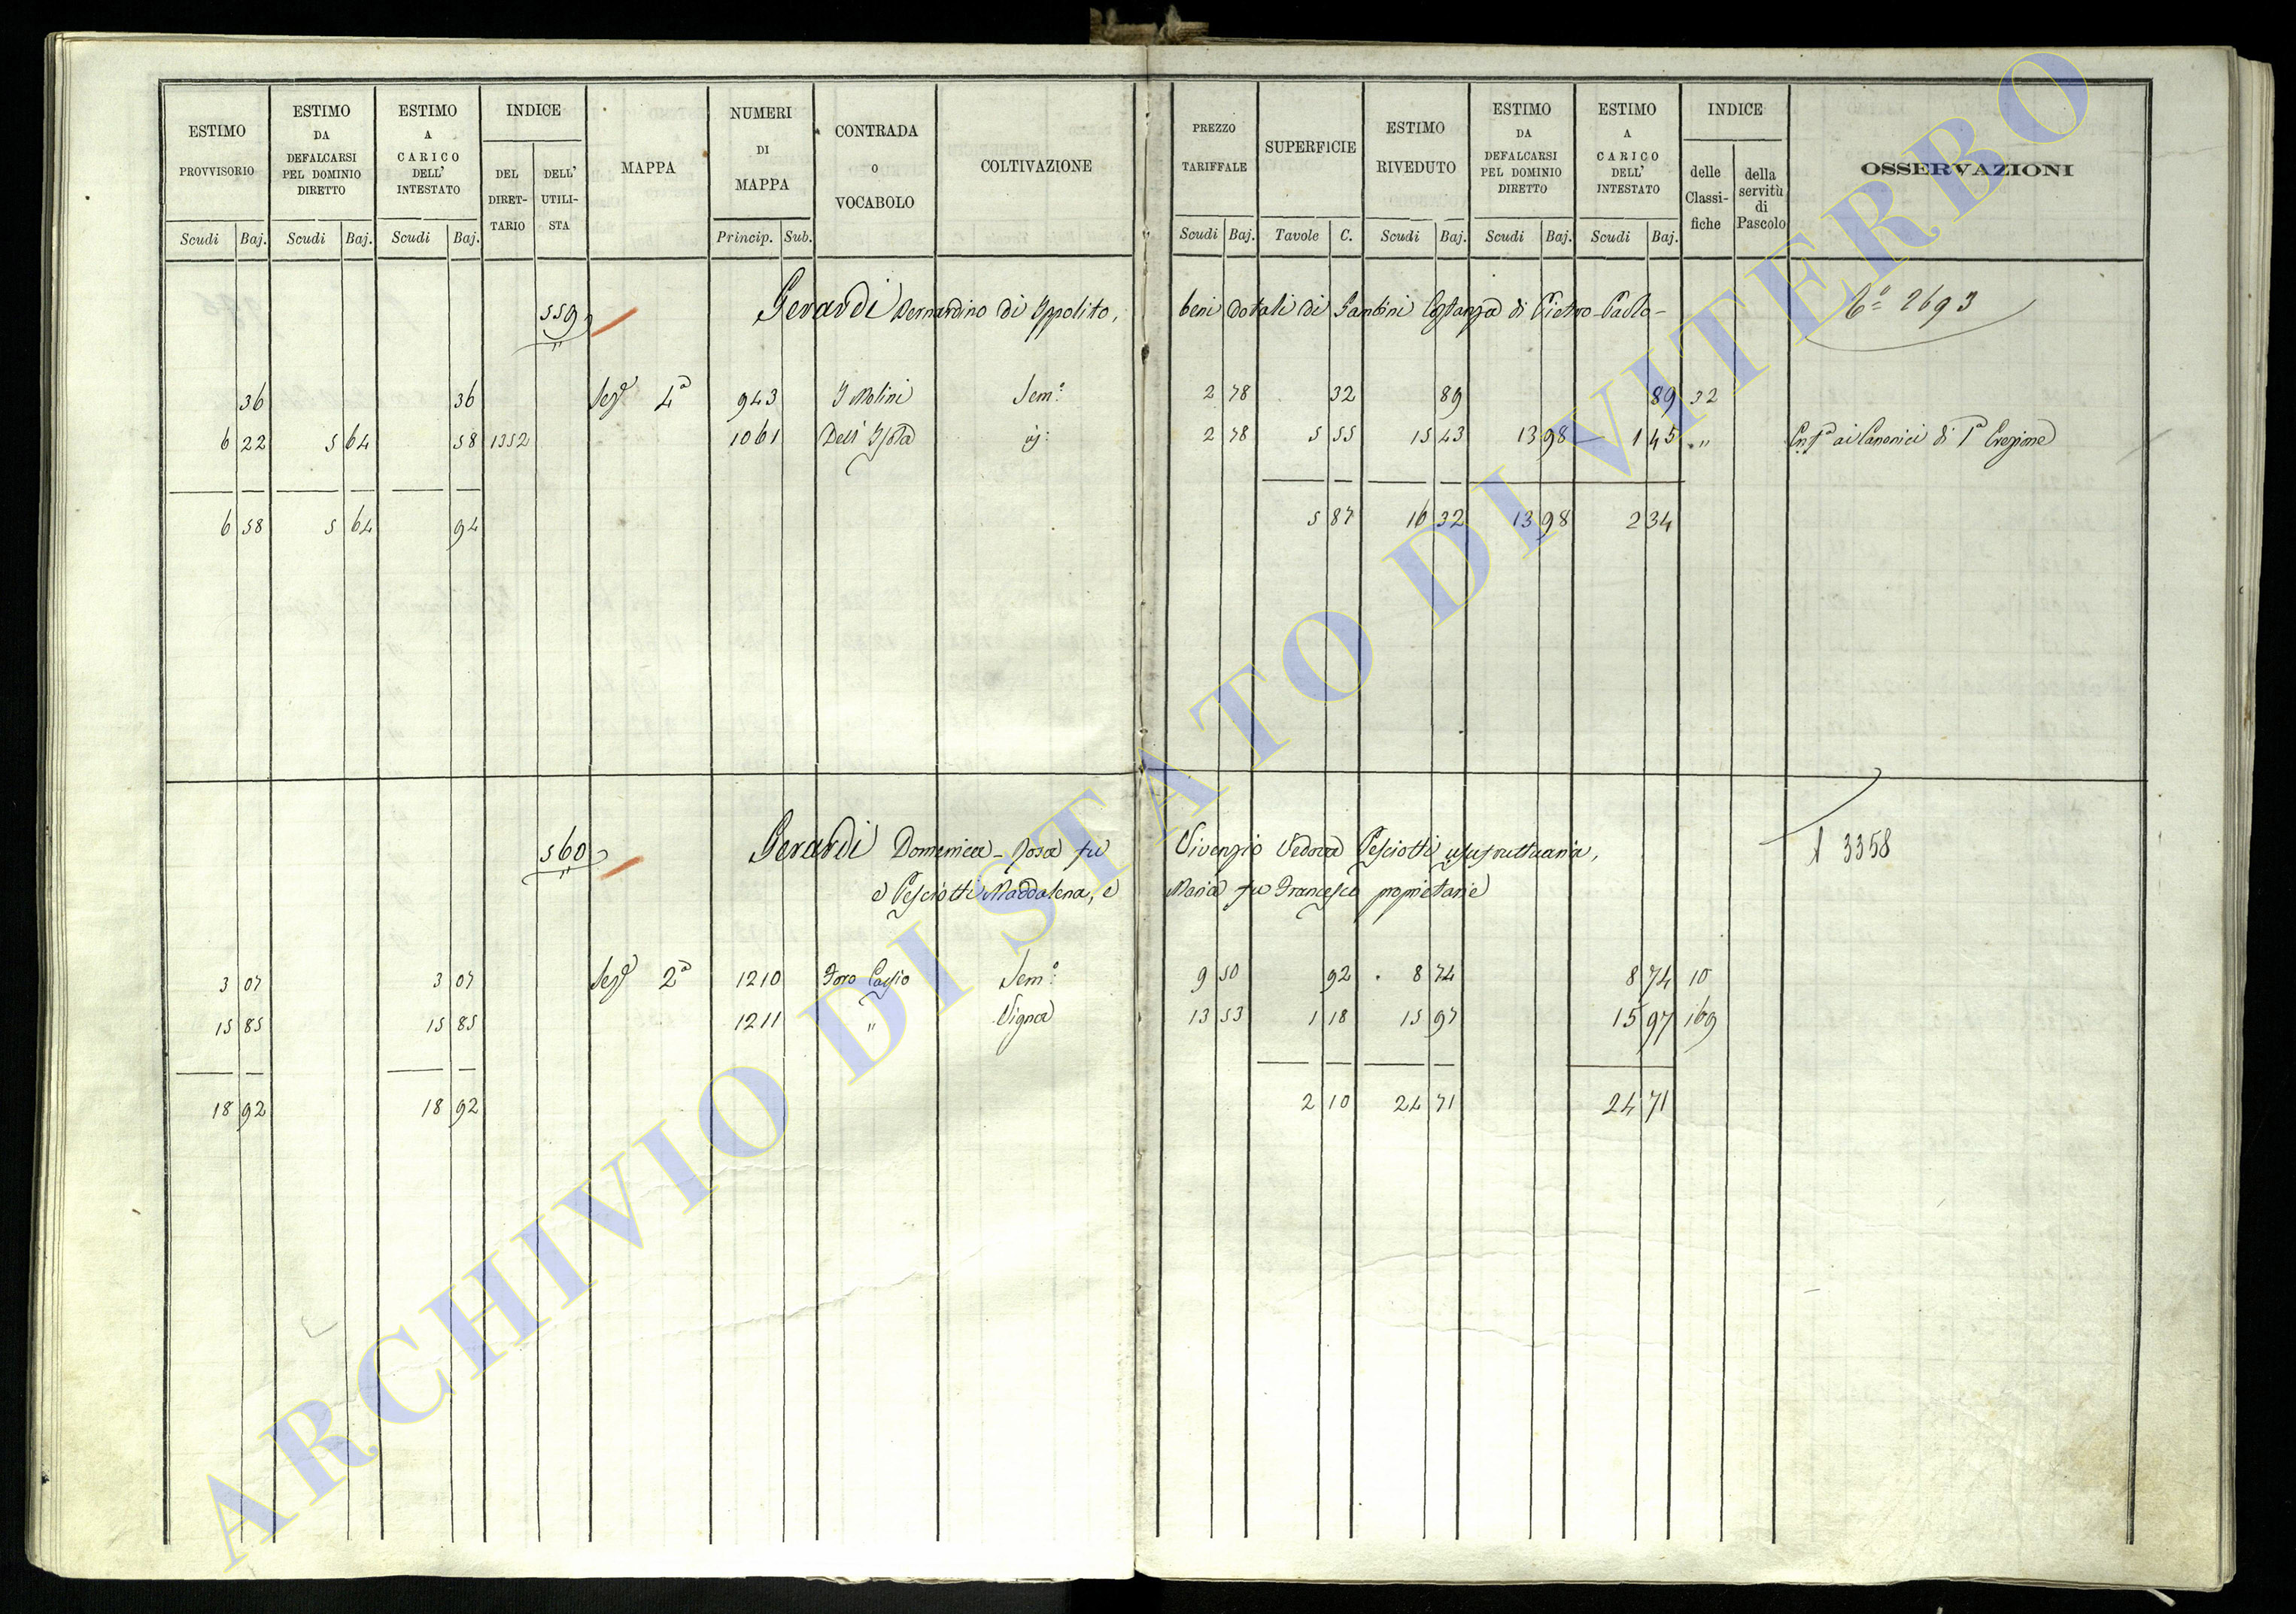 ESTIMO PROVVISORIO Scudi Baj.
ESTIMO DA DEFALCARSI PEL DOMINIO DIRETTO Scudi Baj.
ESTIMO A CARICO DELL' INTESTATO Scudi Baj.
INDICE DEL DIRET-TARIO DELL' UTILI-STA
MAPPA
NUMERI DI MAPPA Princip. Sub.
CONTRADA o VOCABOLO
COLTIVAZIONE
PREZZO TARIFFALE Scudi Baj.
SUPERFICIE Tavole C.
ESTIMO RIVEDUTO Scudi Baj.
ESTIMO DA DEFALCARSI PEL DOMINIO DIRETTO Scudi Baj.
ESTIMO A CARICO DELL' INTESTATO Scudi Baj.
INDICE delle Classi-fiche della servitù di Pascolo
OSSERVAZIONI
559 Gerardi Bernardino di Ippolito, beni dotali di Gambini Costanza di Pietro Paolo - 2693
36 36 Sez. 4a 943 I Molini Sem.o 2 78 32 89 89 32
6 22 5 64 58 1352 1061 Dell' Isola 2 78 5 55 15 43 13 98 1 45 " ai Canonici di 1a Erezione
6 58 5 64 94 5 87 16 32 13 98 2 34
560 Gerardi Domenica-Rosa fu Vivenzio Vedova Pesciotti usufruttuaria, 3358
e Pesciotti Maddalena, e Maria fu Francesco proprietarie
3 07 3 07 Sez. 2a 1210 Foro Cassio Sem.o 9 50 92 8 74 8 74 10
15 85 15 85 1211 " Vigna 13 53 1 18 15 97 15 97 169
18 92 18 92 2 10 24 71 24 71
ARCHIVIO DI STATO DI VITERBO